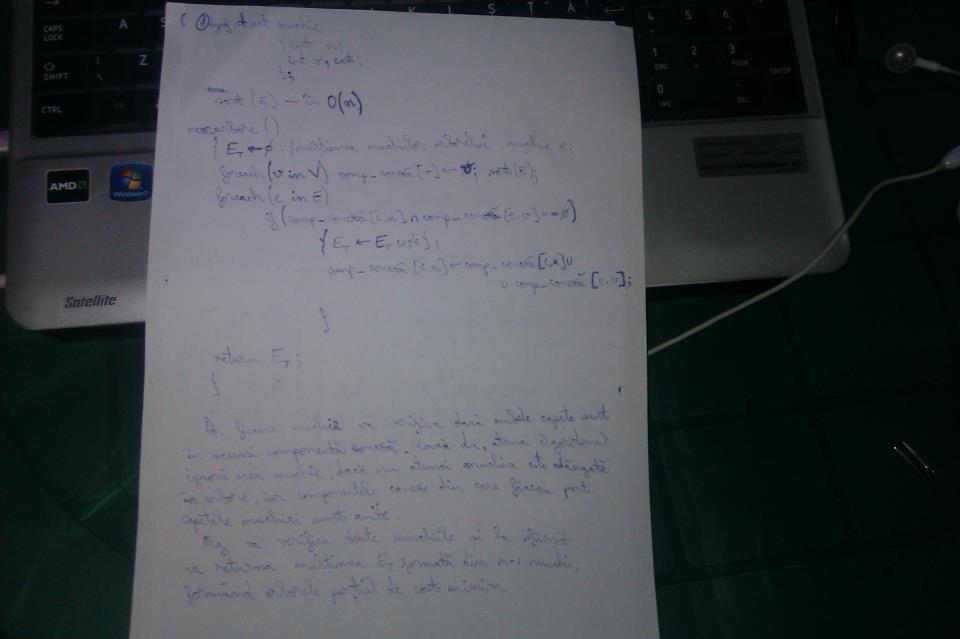 struct muchie
{ int u;
int v, cost;
};
sort(E) – în O(n)
arbore ()
{ E_T ← ∅ mulțimea muchiilor arborelui, muchie e;
foreach (v in V) comp_conexă [v] ← v; sort(E);
foreach (e in E)
if (comp_conexă [e.u] ∩ comp_conexă [e.v] == ∅)
{ E_T ← E_T ∪ {e};
comp_conexă [e.u] ← comp_conexă [e.u] ∪
∪ comp_conexă [e.v];
}
return E_T;
}
fiecare muchie va verifica dacă ambele capete sunt
în aceeași componentă conexă. Dacă da, atunci algoritmul
ignoră muchie, dacă nu atunci muchia este adăugată
în arbore, iar componentele conexe din care făceau parte
capetele muchiei sunt unite.
Alg va verifica toate muchiile și la sfârșit
va returna mulțimea E_T formată din n-1 muchii,
formând arborele parțial de cost minim
CAPS LOCK
A
S
SHIFT
Z
CTRL
FN
K
L
Ș
Ț
Â
4
5
6
1
2
3
ENG
PGDN
ENTER
0
INS
DEL
AMD
Windows 7
Satellite